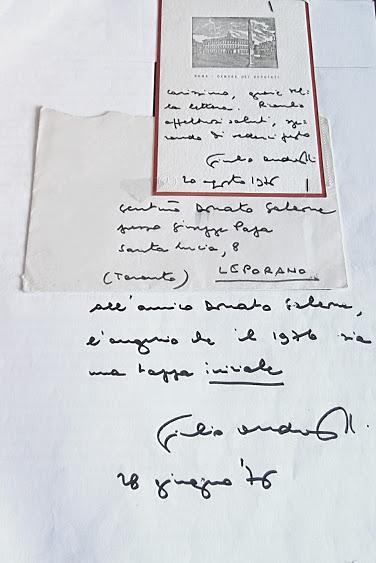 ROMA - CAMERA DEI DEPUTATI
carissimo, grazie della
la lettera. Ricambio
affettuosi saluti, spe-
rando di vederci presto
Giulio Andreotti
20 agosto 1976
Donato Salerno
presso Giuseppe Papa
Santa Lucia, 8
(Taranto) LEPORANO
all'amico Donato Salerno,
l'augurio che il 1976 sia
una tappa iniziale
Giulio Andreotti
28 giugno '76